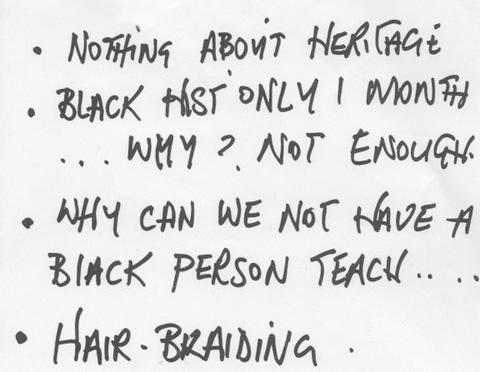 • NOTHING ABOUT HERITAGE
• BLACK HIST ONLY 1 MONTH
... WHY? NOT ENOUGH.
• WHY CAN WE NOT HAVE A
BLACK PERSON TEACH.. ..
• HAIR-BRAIDING .